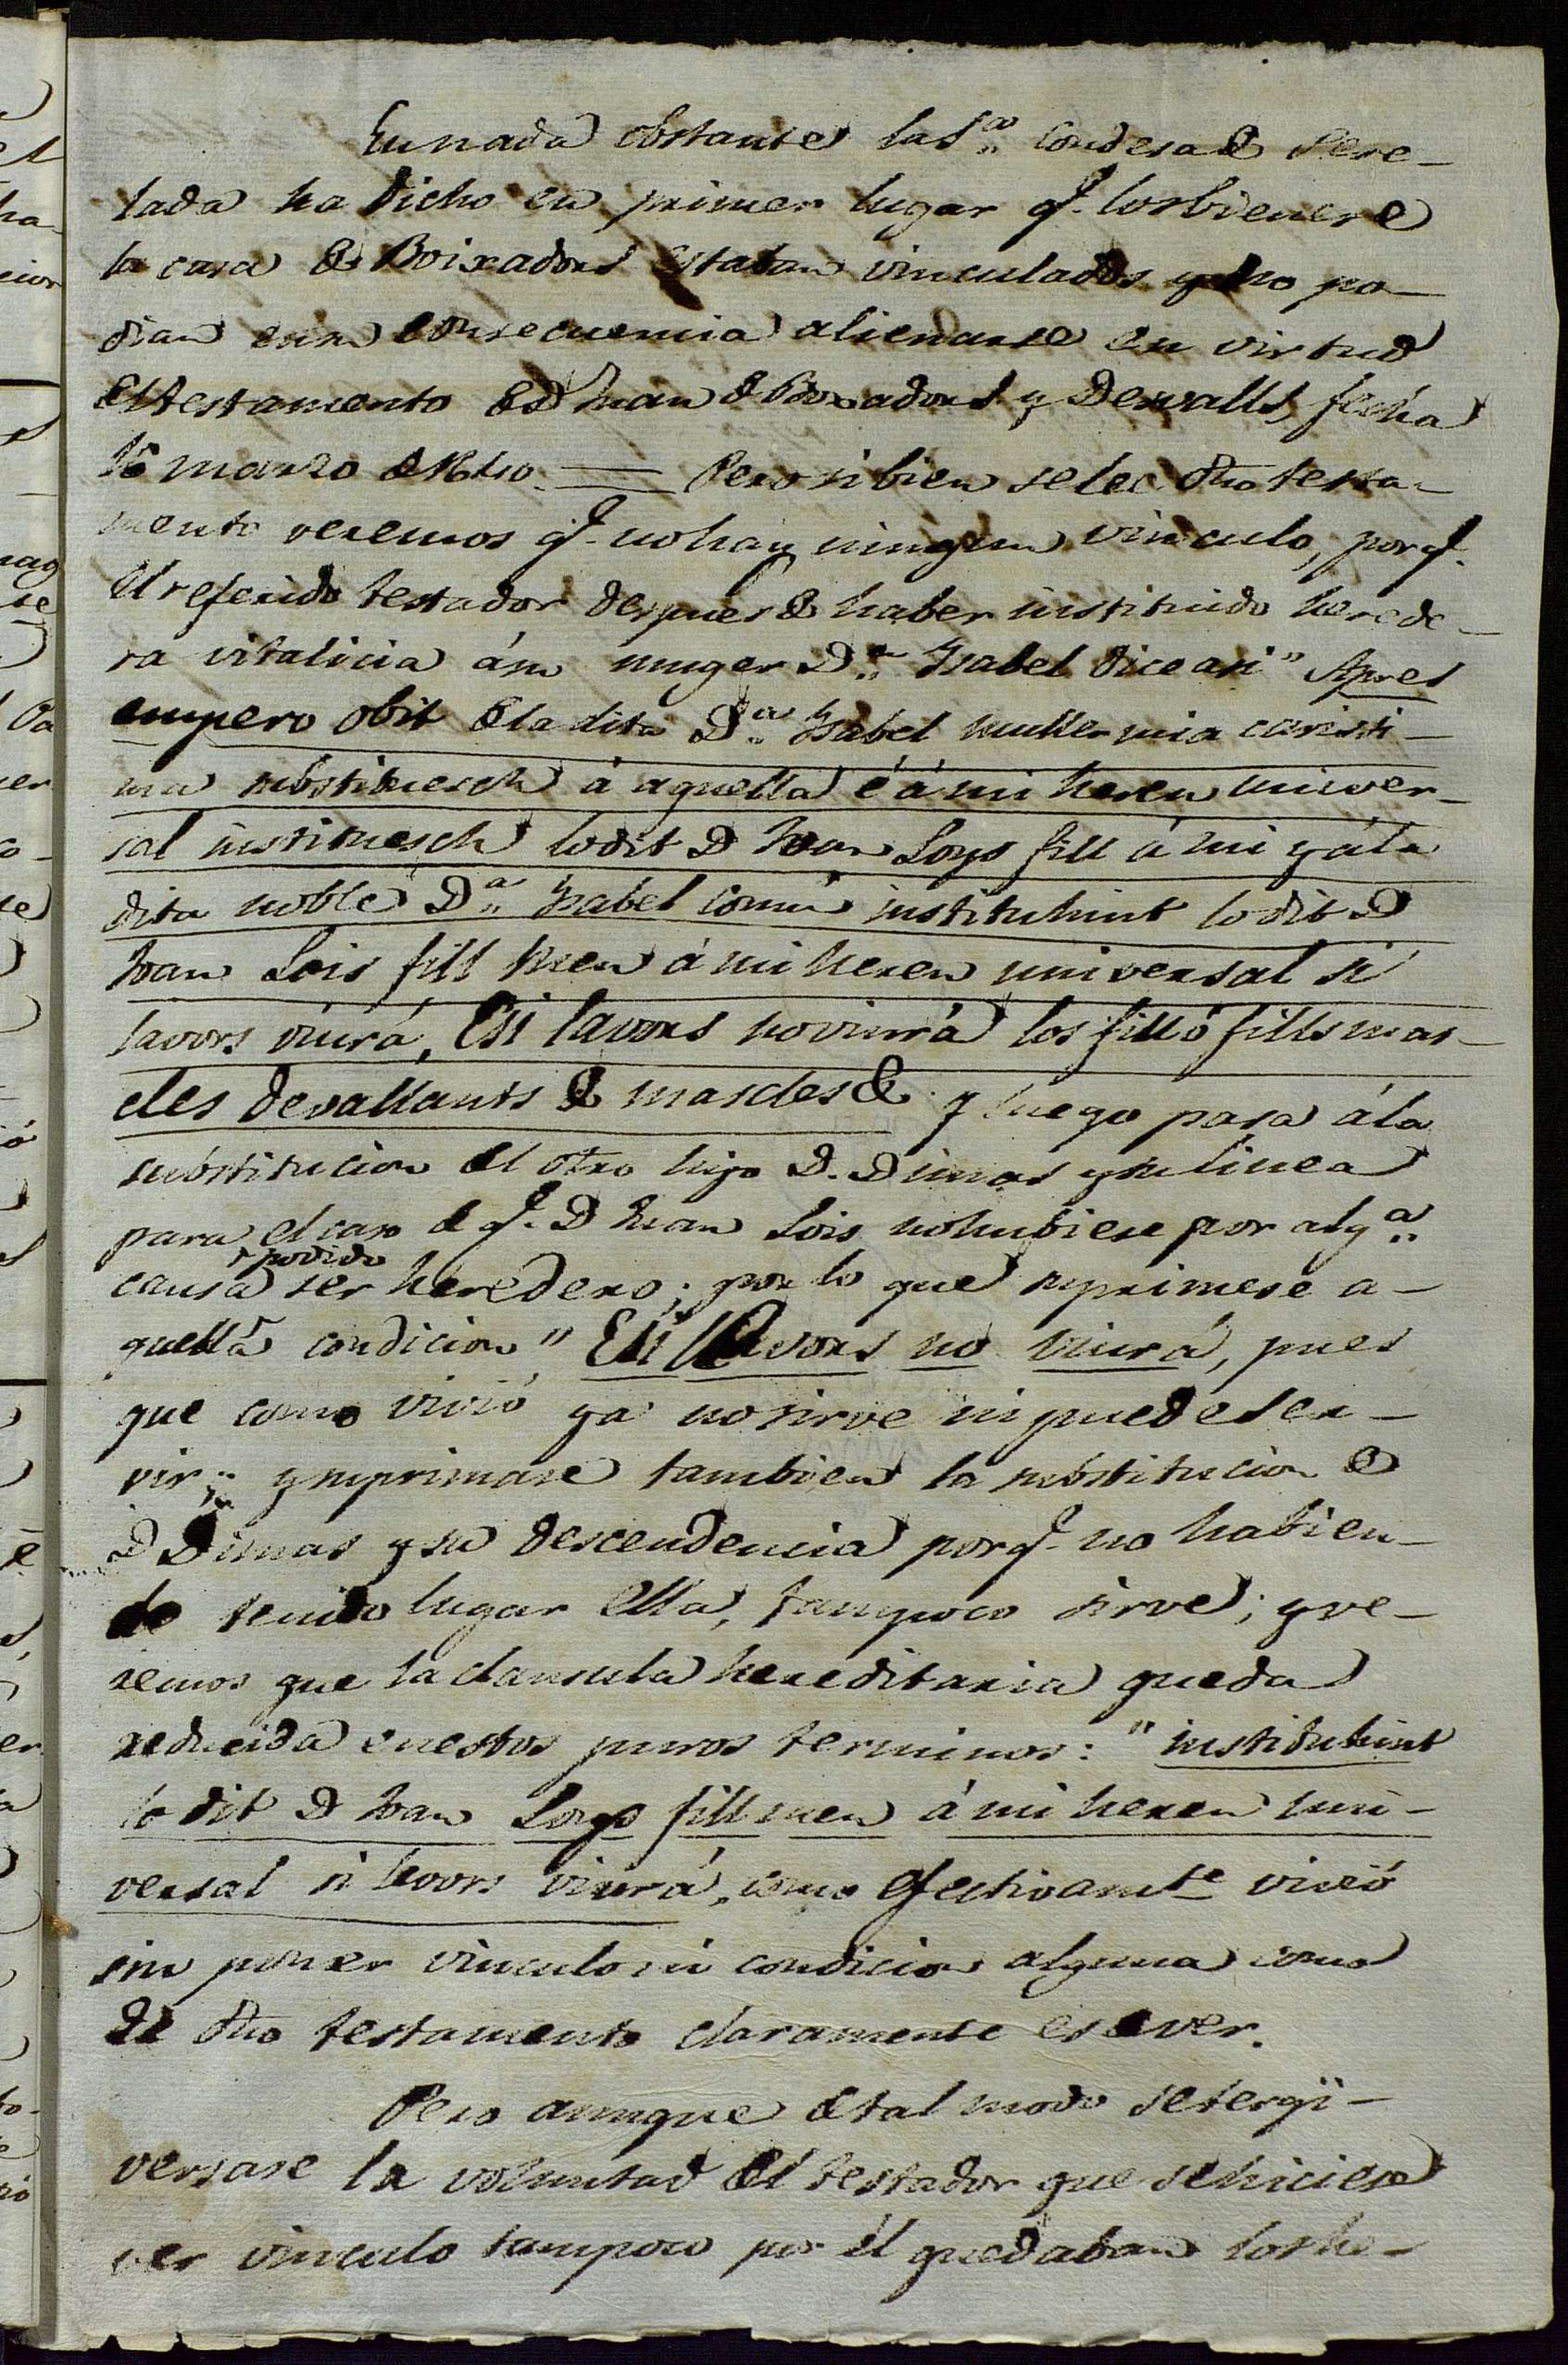 En nada obstante la S.ª Condesa de Pere-
lada ha dicho en primer lugar q.e los bienes de
la casa de Boixadors estaban vinculados y no po-
dian en su consecuencia alienarse en virtud
del testamento de D Juan de Boxadors y Desvalls, fecha
16 marzo de 1640. = Pero si bien se lee dho testa-
mento veremos q.e no hay ningun vinculo, porq.e
el referido testador despues de haber instituido herede-
ra vitalicia á su muger D.ª Ysabel dice asi "Apres
empero obit de la dita D.ª Ysabel muller mia carissi-
ma substituesch á aquella é á mi hereu univer-
sal instituesch lo dit D Joan Loys fill á mi y á la
dita noble D.ª Ysabel comú instituhint lo dit D
Joan Lois fill meu á mi hereu universal si
lavors viurá, E si lavors no viurá los fill ó fills mas-
cles devallants de mascles &. y luego pasa á la
substitucion del otro hijo D. Dimas y su linea
para el caso de q.e D Juan Lois no hubiese por alg.ª
causa podido ser heredero; por lo que suprimese a-
quella condicion " E si llavors no viurá, pues
que como vivió ya no sirve ni puede ser-
vir; y suprimase tambien la substitucion de
D Dimas y su descendencia porq.e no habien-
do tenido lugar ella, tampoco sirve; y ve-
remos que la clausula hereditaria queda
reducida en estos puros terminos: "instituhint
lo dit D Joan Loys fill meu á mi hereu uni-
versal si lavors viurá, como efectivam.te vivió
sin poner vinculo ni condicion alguna como
de dho testamento claramente es de ver.
Pero aunque de tal modo se tergi-
versase la voluntad del testador que se hiciese
ver vinculo tampoco por él quedaban los he-